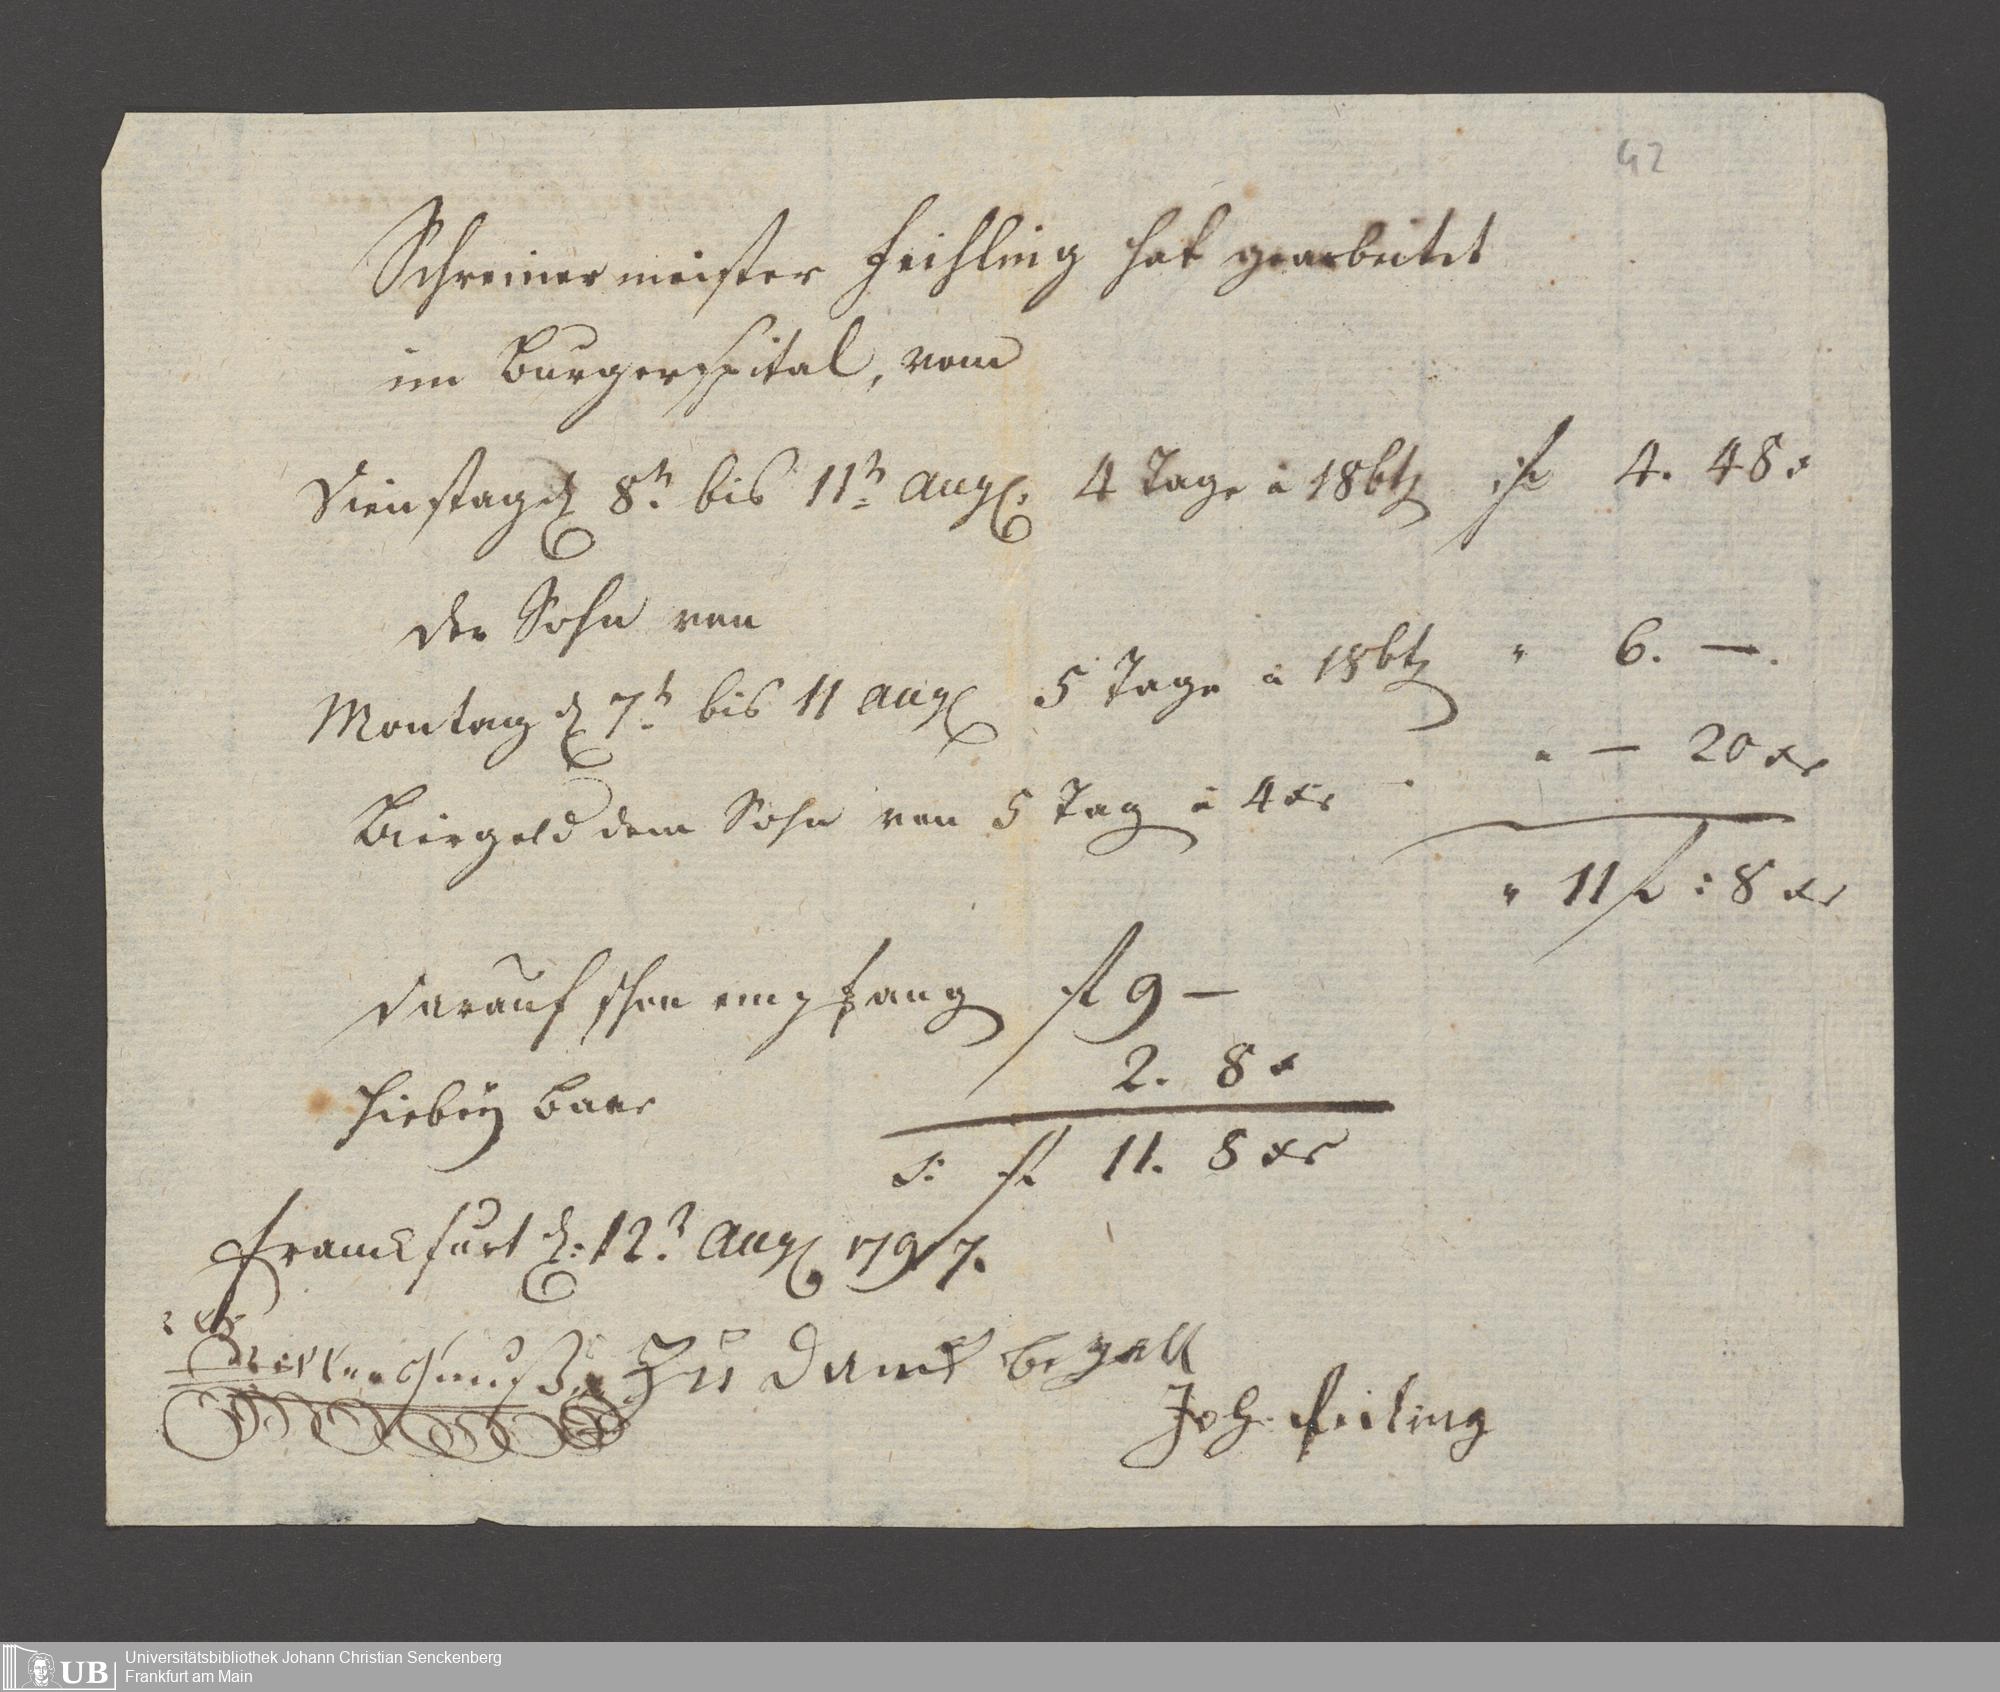 42
Schreinermeister Feihling hat gearbeitet
im Burgerspital, vom
Dienstag d 8n. bis 11n. Aug: 4 Tage a 18btz fl 4. 48x
der Sohn von
Montag d 7n. bis 11 Aug 5 Tage a 18btz " 6. —.
Biergeld dem Sohn von 5 Tag a 4xr " — 20xr
" 11fl : 8xr
darauf schon empfang fl 9 —
hiebey baar 2. 8x
S: fl 11. 8xr
Franckfurt d: 12n. Aug 1797.
zu danck bezalt
Joh. Feiling
Universitätsbibliothek Johann Christian Senckenberg
Frankfurt am Main
UB